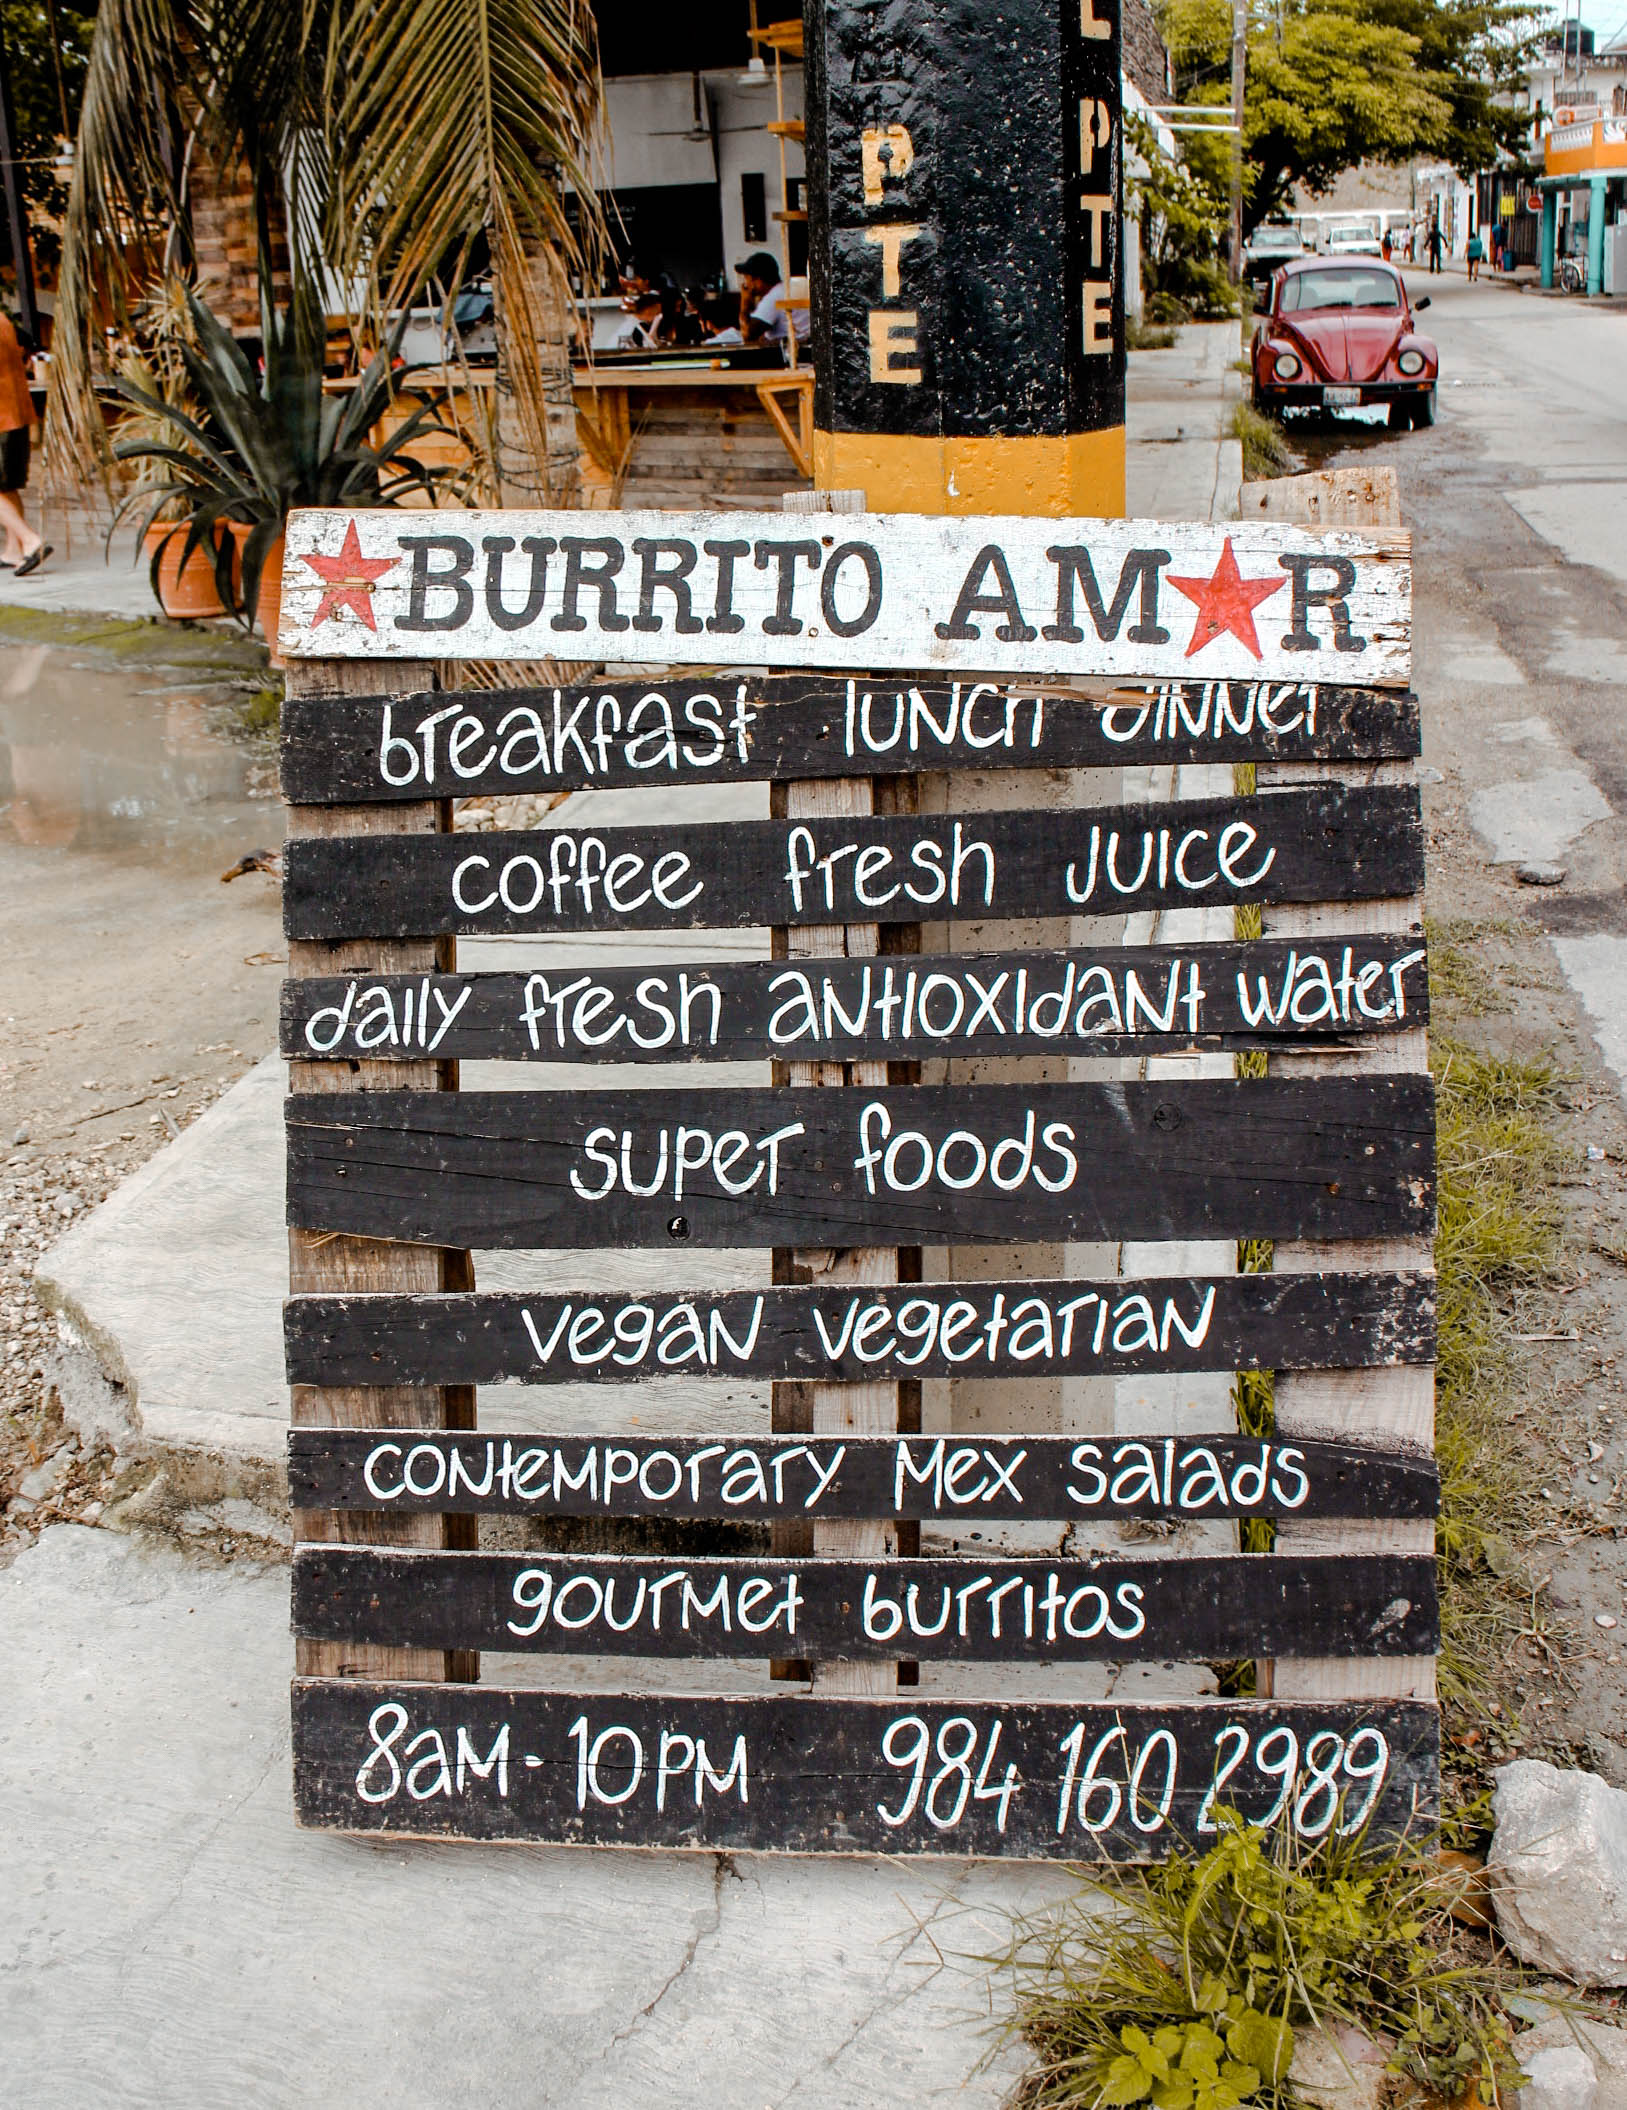 P
T
E
L
P
T
E
BURRITO AM★R
breakfast lunch dinner
coffee fresh juice
daily fresh antioxidant water
super foods
vegan vegetarian
contemporary Mex salads
gourmet burritos
8am - 10pm 984 160 2989